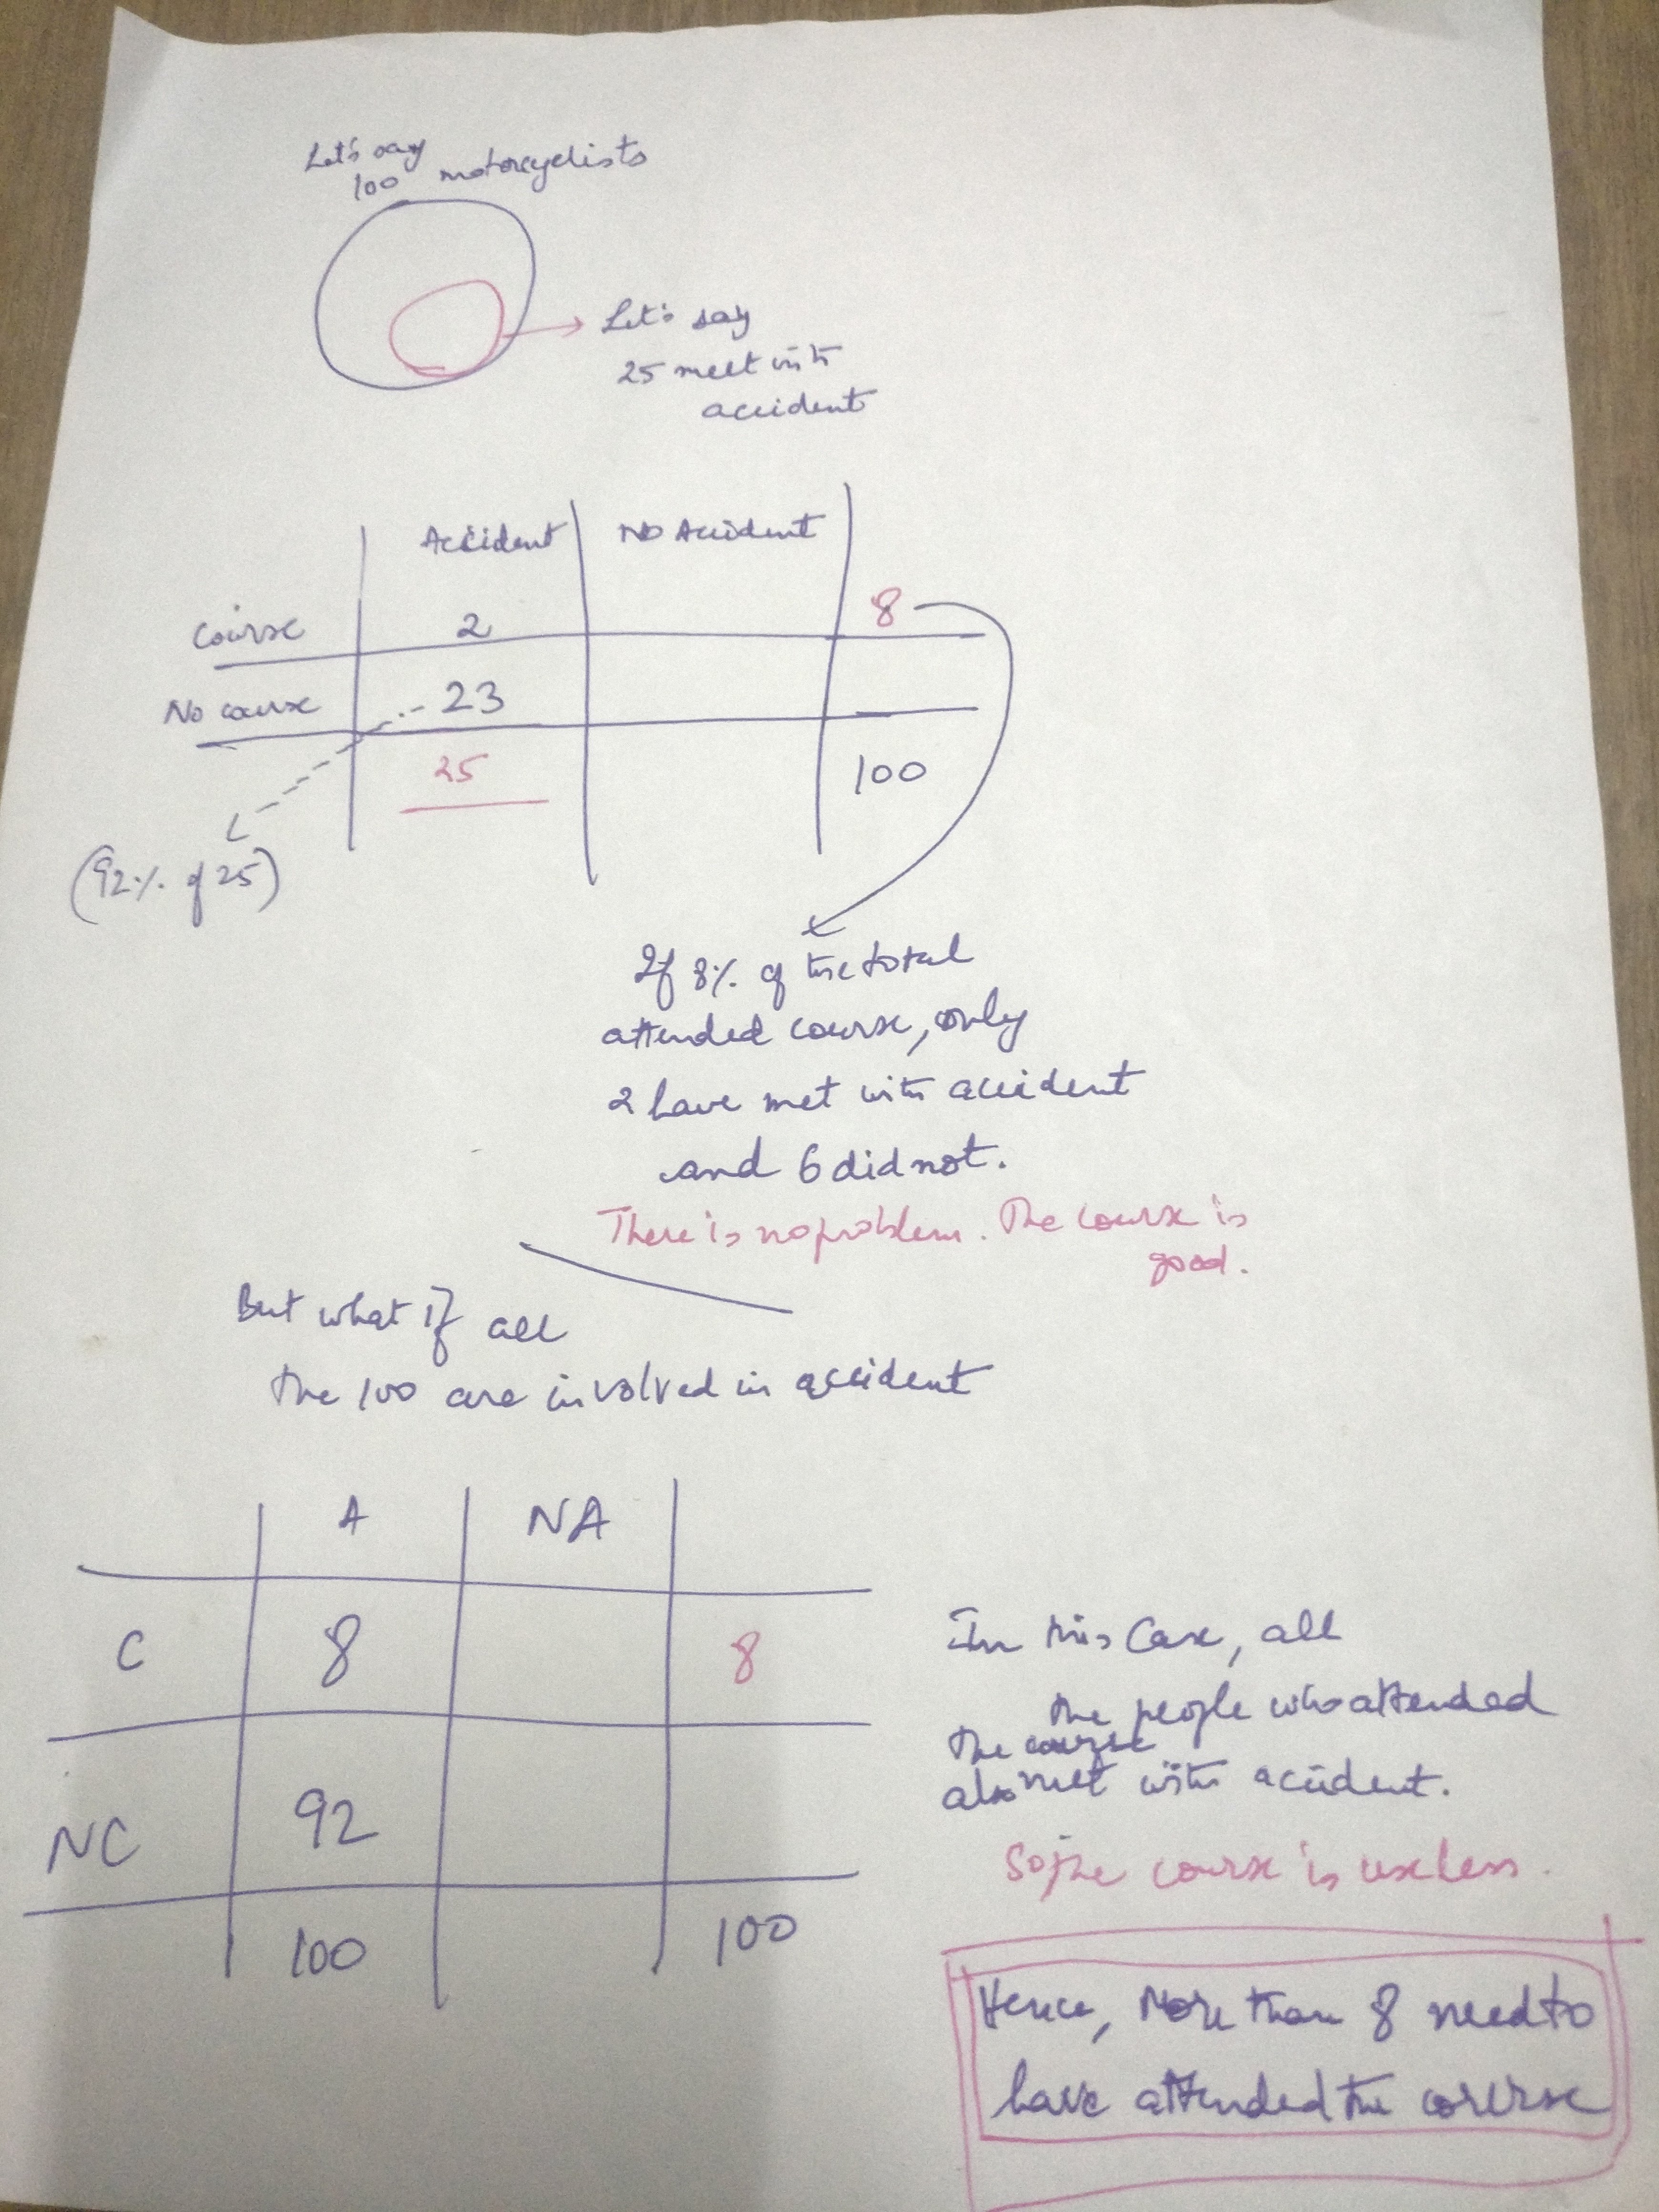 Let's say
100 motorcyclists
Let's say
25 meet with
accident
Accident No Accident
Course 2 8
No course 23
25 100
(92% of 25)
If 8% of the total
attended course, only
2 have met with accident
and 6 did not.
There is no problem. The course is
good.
But what if all
the 100 are involved in accident
A NA
C 8 8
NC 92
100 100
In this Case, all
the people who attended
the course
also met with accident.
So, the course is useless.
Hence, More than 8 need to
have attended the course